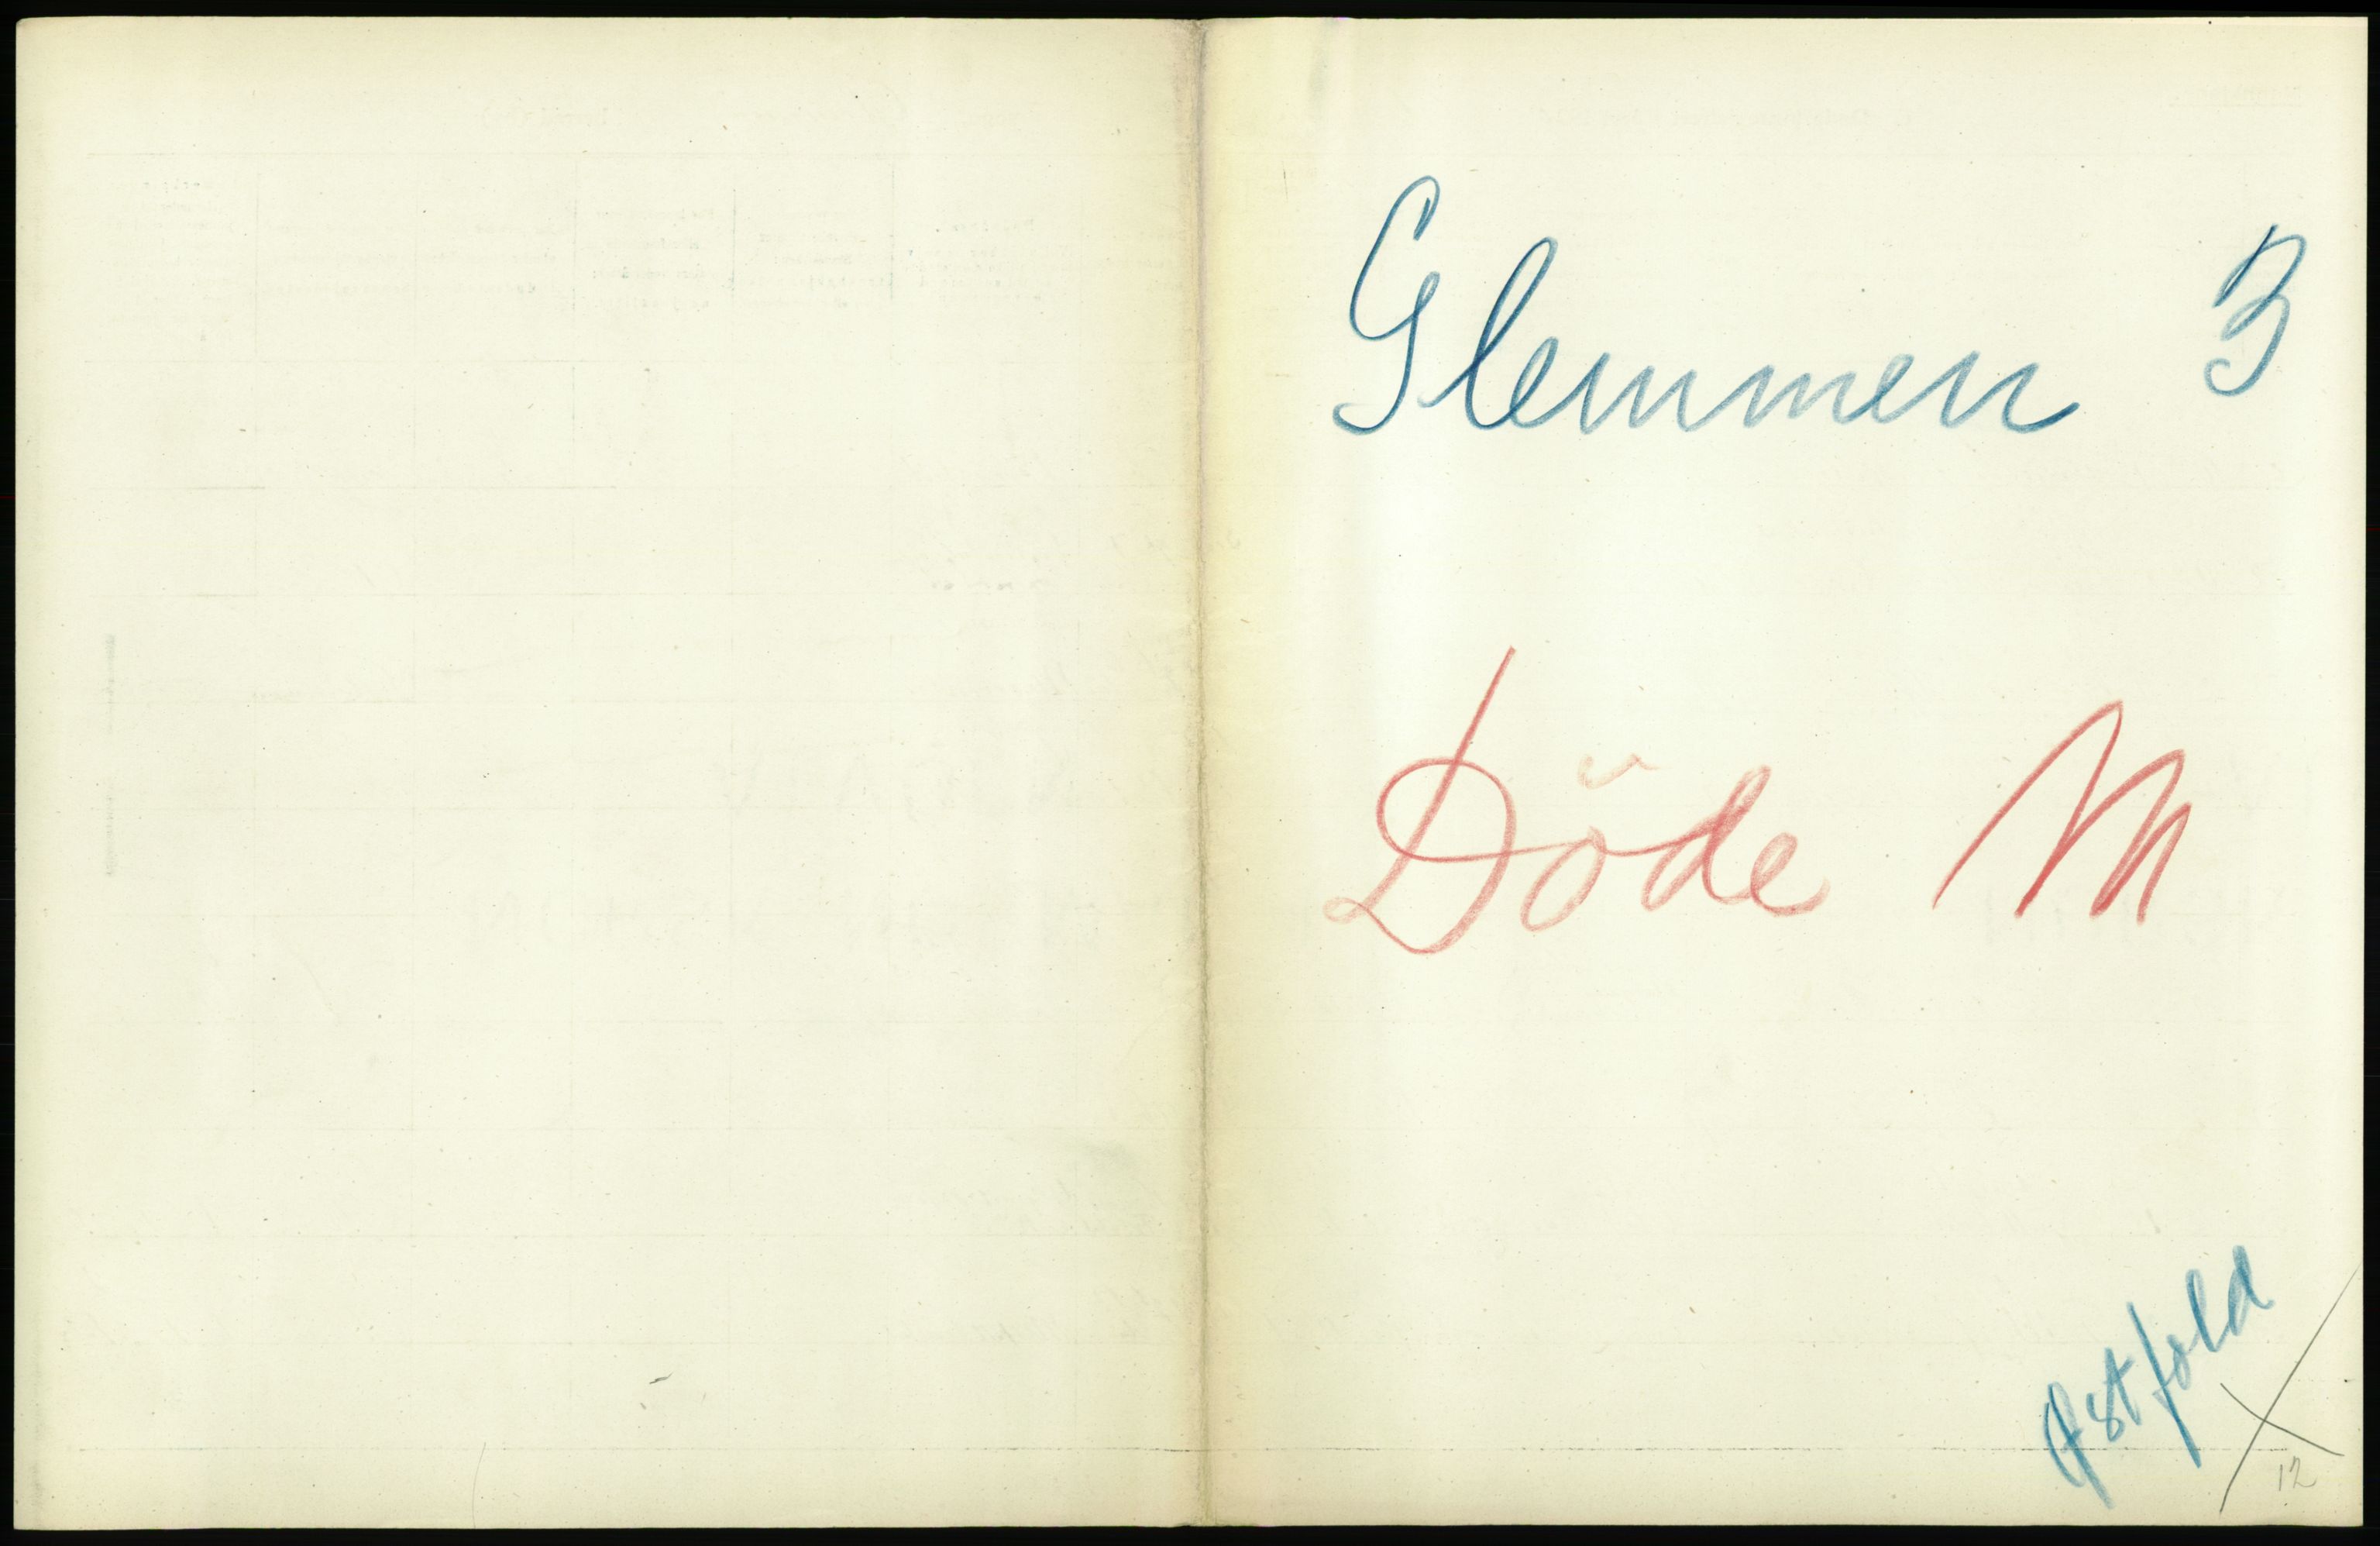 Glemmen 3
Döde M
Østfold
12